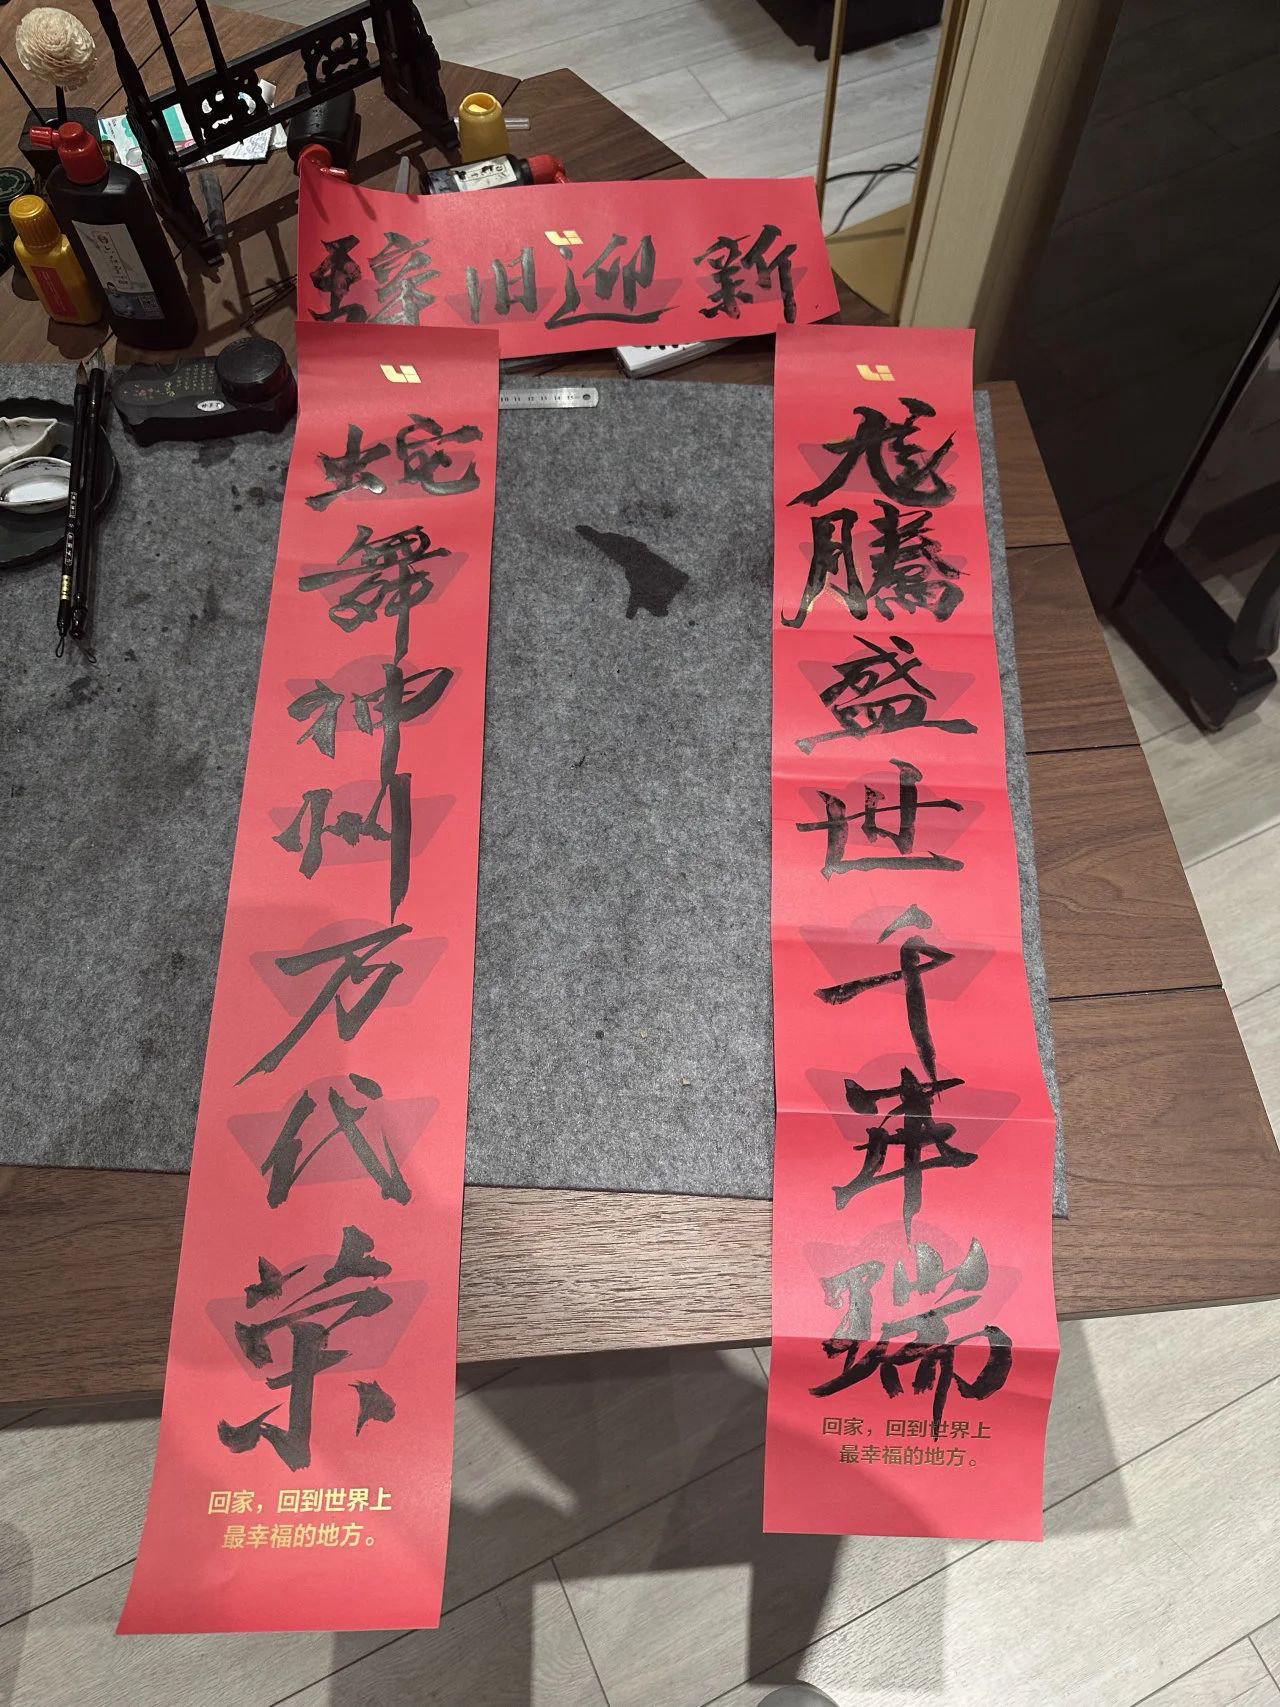 辞旧迎新
龙腾盛世千年瑞
回家，回到世界上
最幸福的地方。
蛇舞神州万代荣
回家，回到世界上
最幸福的地方。
10 11 12 13 14 15